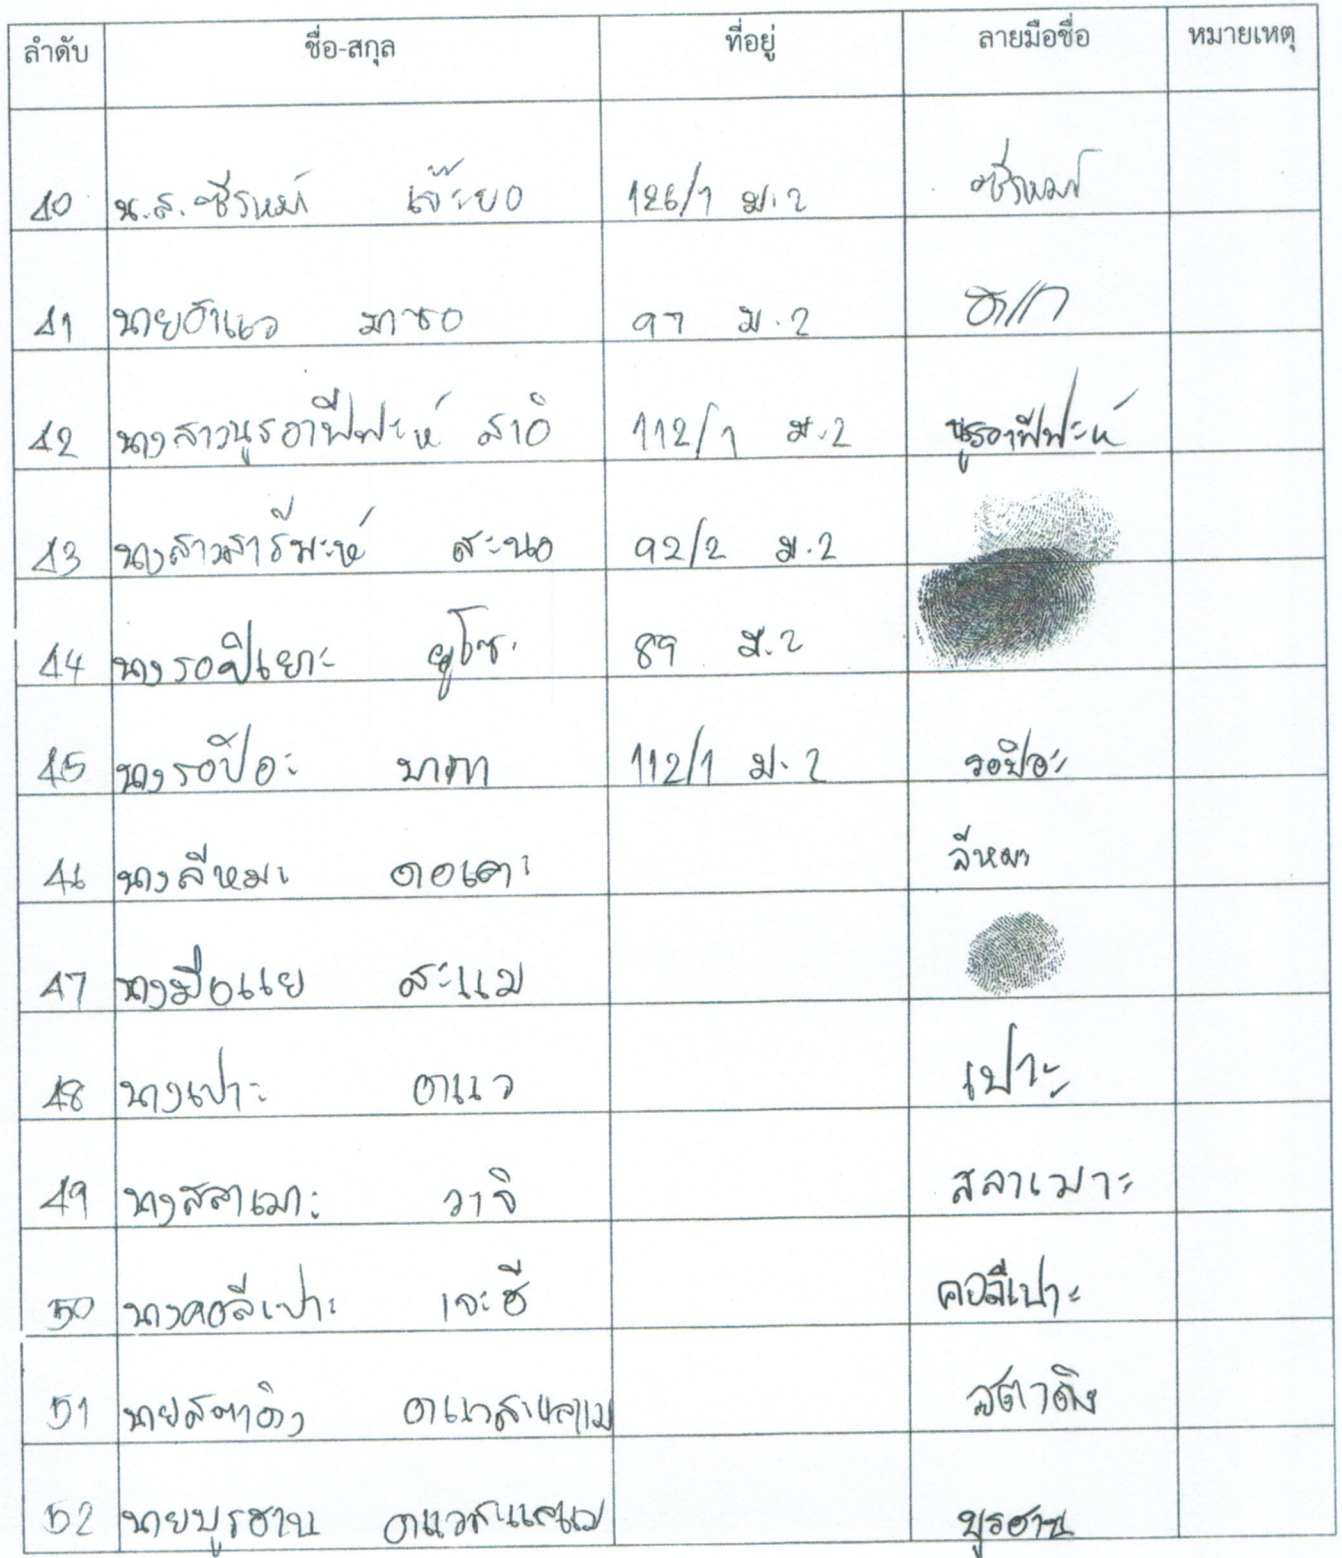 ลำดับ ชื่อ-สกุล ที่อยู่ ลายมือชื่อ หมายเหตุ
40 น.ส.ซีรหม๊ะ เจ๊ะยอ 126/1 ม.2
41 นายอาแว มาซอ 97 ม.2
42 นางสาวนูรอาฟีฟะห์ สาอิ 112/1 ม.2 นูรอาฟีฟะห์
43 นางสาวสารีพะห์ สะนอ 92/2 ม.2
44 นางรอปีเยาะ ยูโซะ 89 ม.2
45 นางรอปีอะ มาคา 112/1 ม.2 รอปีอะ
46 นางลีหมะ ลีหมะ
47 นางมือแย สะแม
48 นางเปาะ อาแว เปาะ
49 นางสลาเมาะ วาจิ สลาเมาะ
50 นางคอลีเปาะ เจะฮี คอลีเปาะ
51 นายสตาดิง สตาดิง
52 นายบูรฮาน บูรฮาน